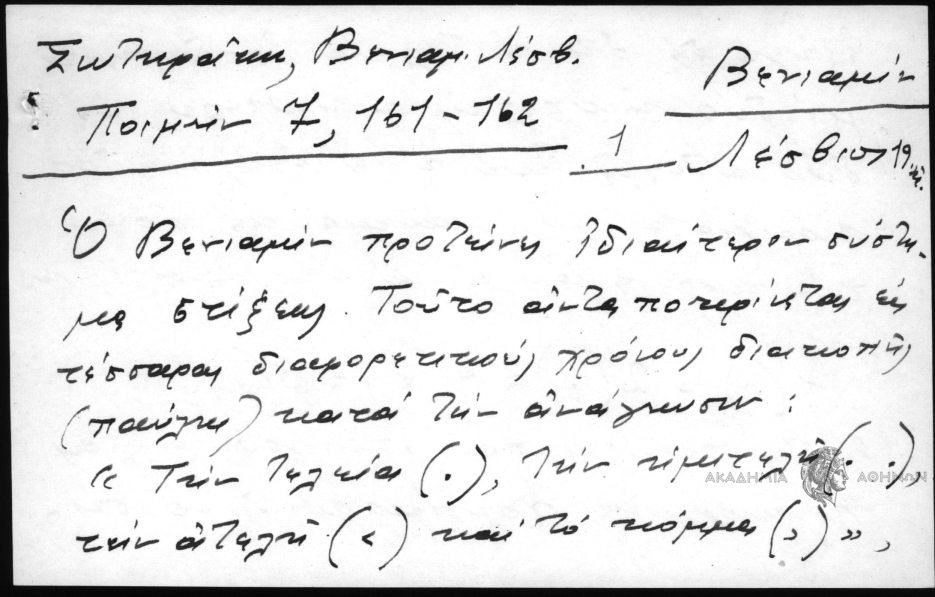 Σωτηράκη, Βενιαμ. Λέσβ.
Ποιμήν 7, 161-162
Βενιαμίν
1
Λέσβιος 19
Ὁ Βενιαμίν προτείνει ἰδιαίτερον σύστη-
μα στίξεως. Τοῦτο ἀνταποκρίνεται εἰς
τέσσαρας διαφορετικούς χρόνους διακοπῆς
(παύλης) κατά τήν ἀνάγνωσιν:
« Τήν Τελεία (.), τήν ἡμιτελῆ (. .),
τήν ἀτελῆ (<) καί τό κόμμα (,) »,
ΑΚΑΔΗΜΙΑ ΑΘΗΝΩΝ